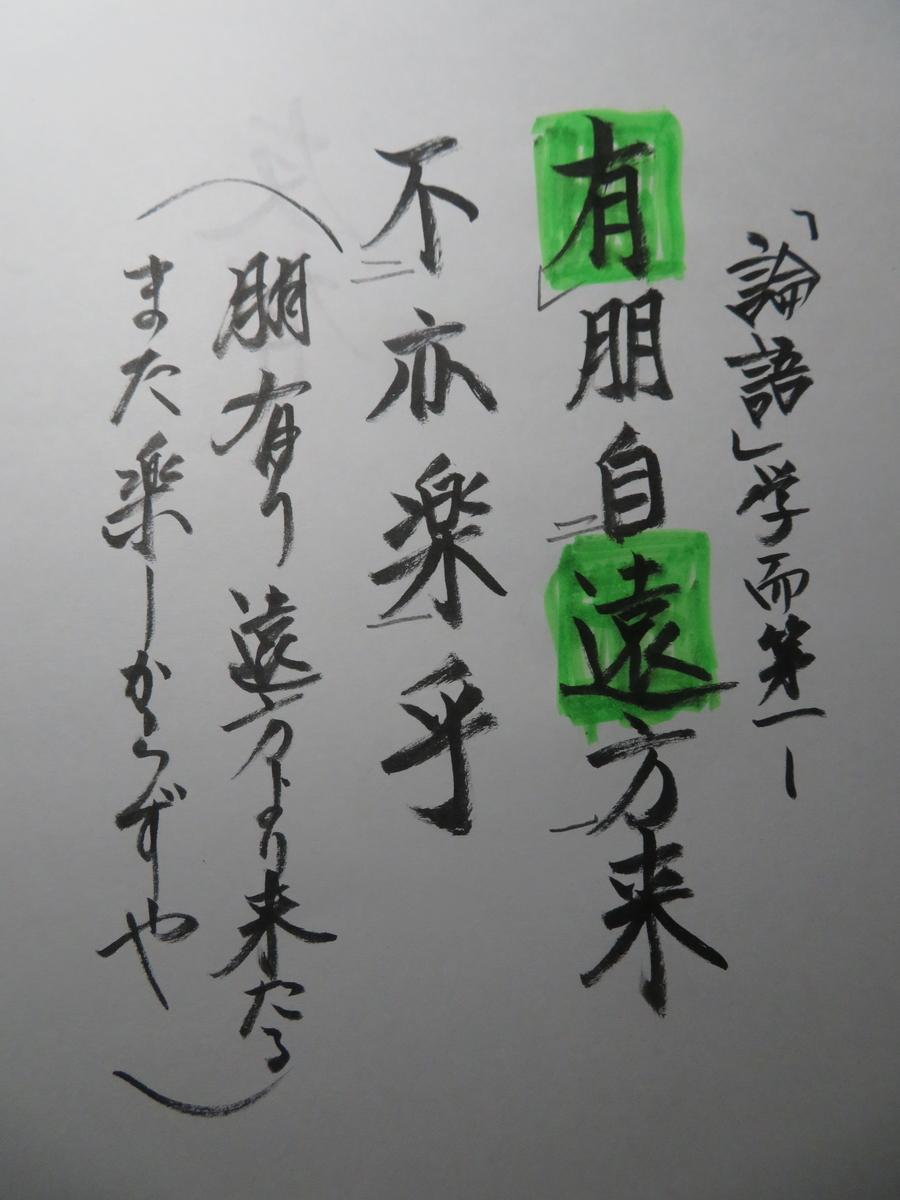 「論語」学而第一ー
有㆑朋自㆓遠方㆒来
不㆓亦楽㆒乎
（朋有り遠方より来たる
また楽しからずや）